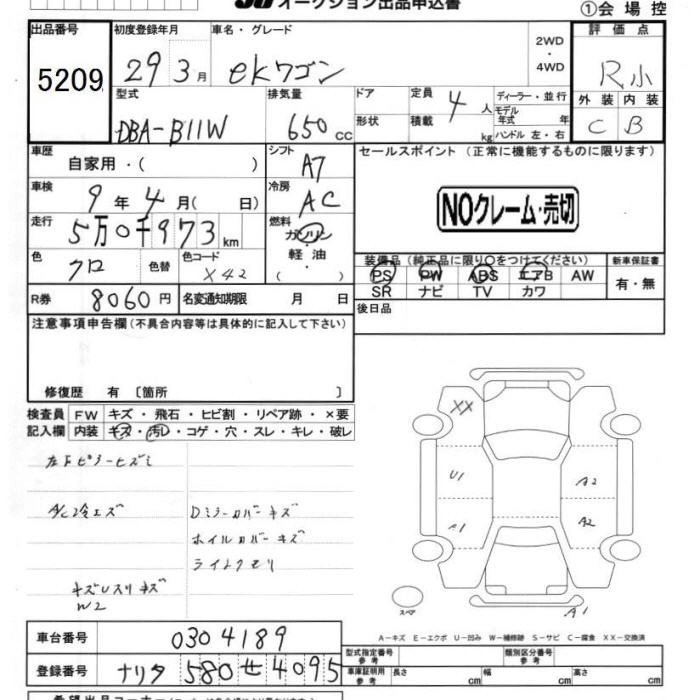 オークション出品申込書
①会場控
出品番号 初度登録年月 車名・グレード 2WD・4WD 評価点
5209 29 3月 eKワゴン R小
型式 排気量 ドア 定員 ディーラー・並行 外装 内装
DBA-B11W 650 cc 形状 積載 4人 kg モデル年式 年 ハンドル 左・右 C B
車歴 シフト セールスポイント (正常に機能するものに限ります)
自家用・( ) A7
車検 9年4月( 日) 冷房 AC NOクレーム・売切
走行 5万0千973km 燃料 ガソリン・軽油 ( )
色 クロ 色替 色コード X42
装備品(純正品に限り○をつけてください) 新車保証書
PS PW ABS エアB AW 有・無
SR ナビ TV カワ
R券 8060円 名変通知期限 月 日 後日品
注意事項申告欄(不具合内容等は具体的に記入して下さい)
修復歴 有 〔箇所 〕
検査員 FW キズ・飛石・ヒビ割・リペア跡・×要
記入欄 内装 キズ・汚レ・コゲ・穴・スレ・キレ・破レ
XX
左Fピラーヒズミ
U1 A2
A/C冷エズ Dミラーカバーキズ
A1 A2
ホイルカバーキズ
ライトクモリ
キズUスリキズ
W2
スペア A1
A-キズ E-エクボ U-凹み W-補修跡 S-サビ C-腐食 XX-交換済
車台番号 0304189
型式指定番号 参考 類別区分番号 参考
登録番号 ナリタ 580せ4095
車庫証明用 参考 長さ cm 幅 cm 高さ cm